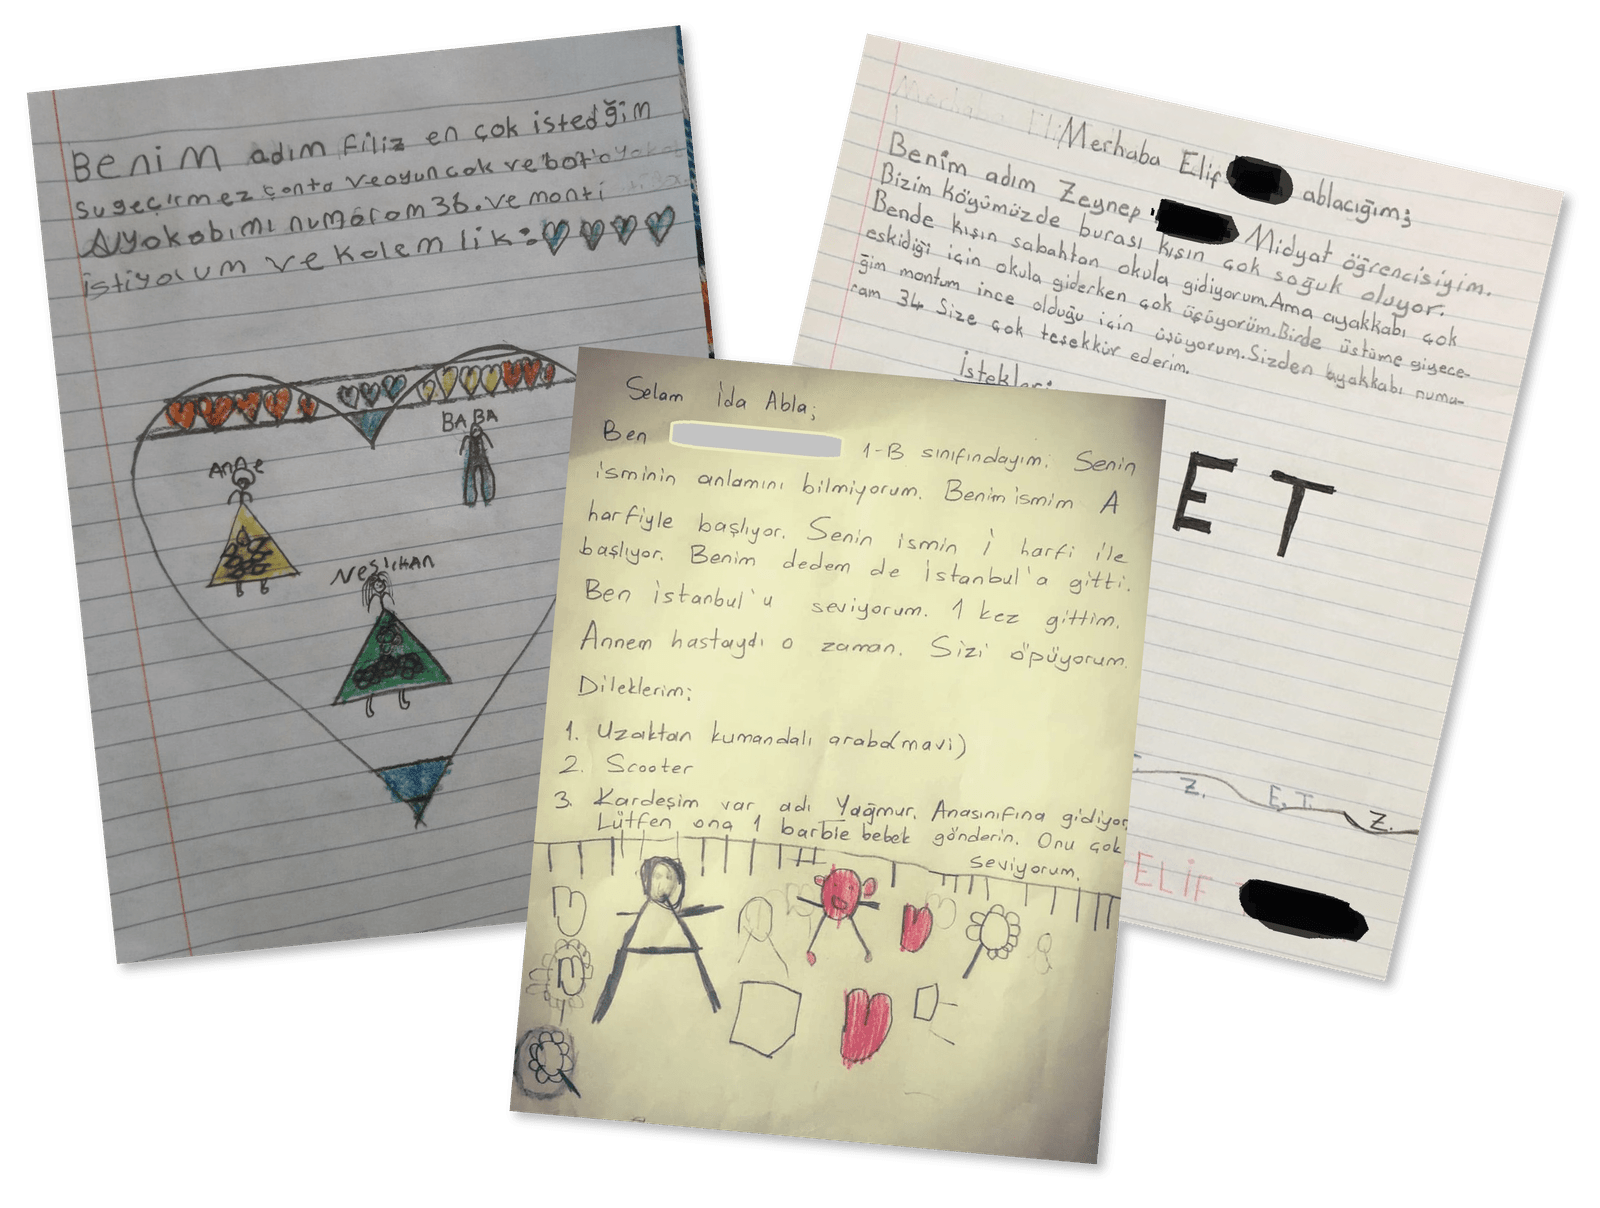 Benim adım filiz en çok istedğim
sugeçirmez çanta veoyuncak ve bot
Ayakabımı numaram 36. ve monti
istiyorum ve kalemlik:
ANNe
BABA
NesliHAN
Selam İda Abla;
Ben 1-B sınıfındayım. Senin
isminin anlamını bilmiyorum. Benim ismim A
harfiyle başlıyor. Senin ismin İ harfi ile
başlıyor. Benim dedem de İstanbul'a gitti.
Ben İstanbul'u seviyorum. 1 kez gittim.
Annem hastaydı o zaman. Sizi öpüyorum.
Dileklerim:
1. Uzaktan kumandalı araba(mavi)
2. Scooter
3. Kardeşim var adı Yağmur. Anasınıfına gidiyor.
Lütfen ona 1 barbie bebek gönderin. Onu çok
seviyorum.
Merhaba Elif ablacığım;
Benim adım Zeynep Midyat öğrencisiyim.
Bizim köyümüzde burası kışın çok soğuk oluyor.
Bende kışın sabahtan okula gidiyorum. Ama ayakkabı çok
eskidiği için okula giderken çok üşüyorüm. Birde üstüme giyece-
ğim montum ince olduğu için üşüyorum. Sizden ayakkabı numa-
ram 34 Size çok teşekkür ederim.
İstekleri
ET
Z. E.T. Z.
ELİF